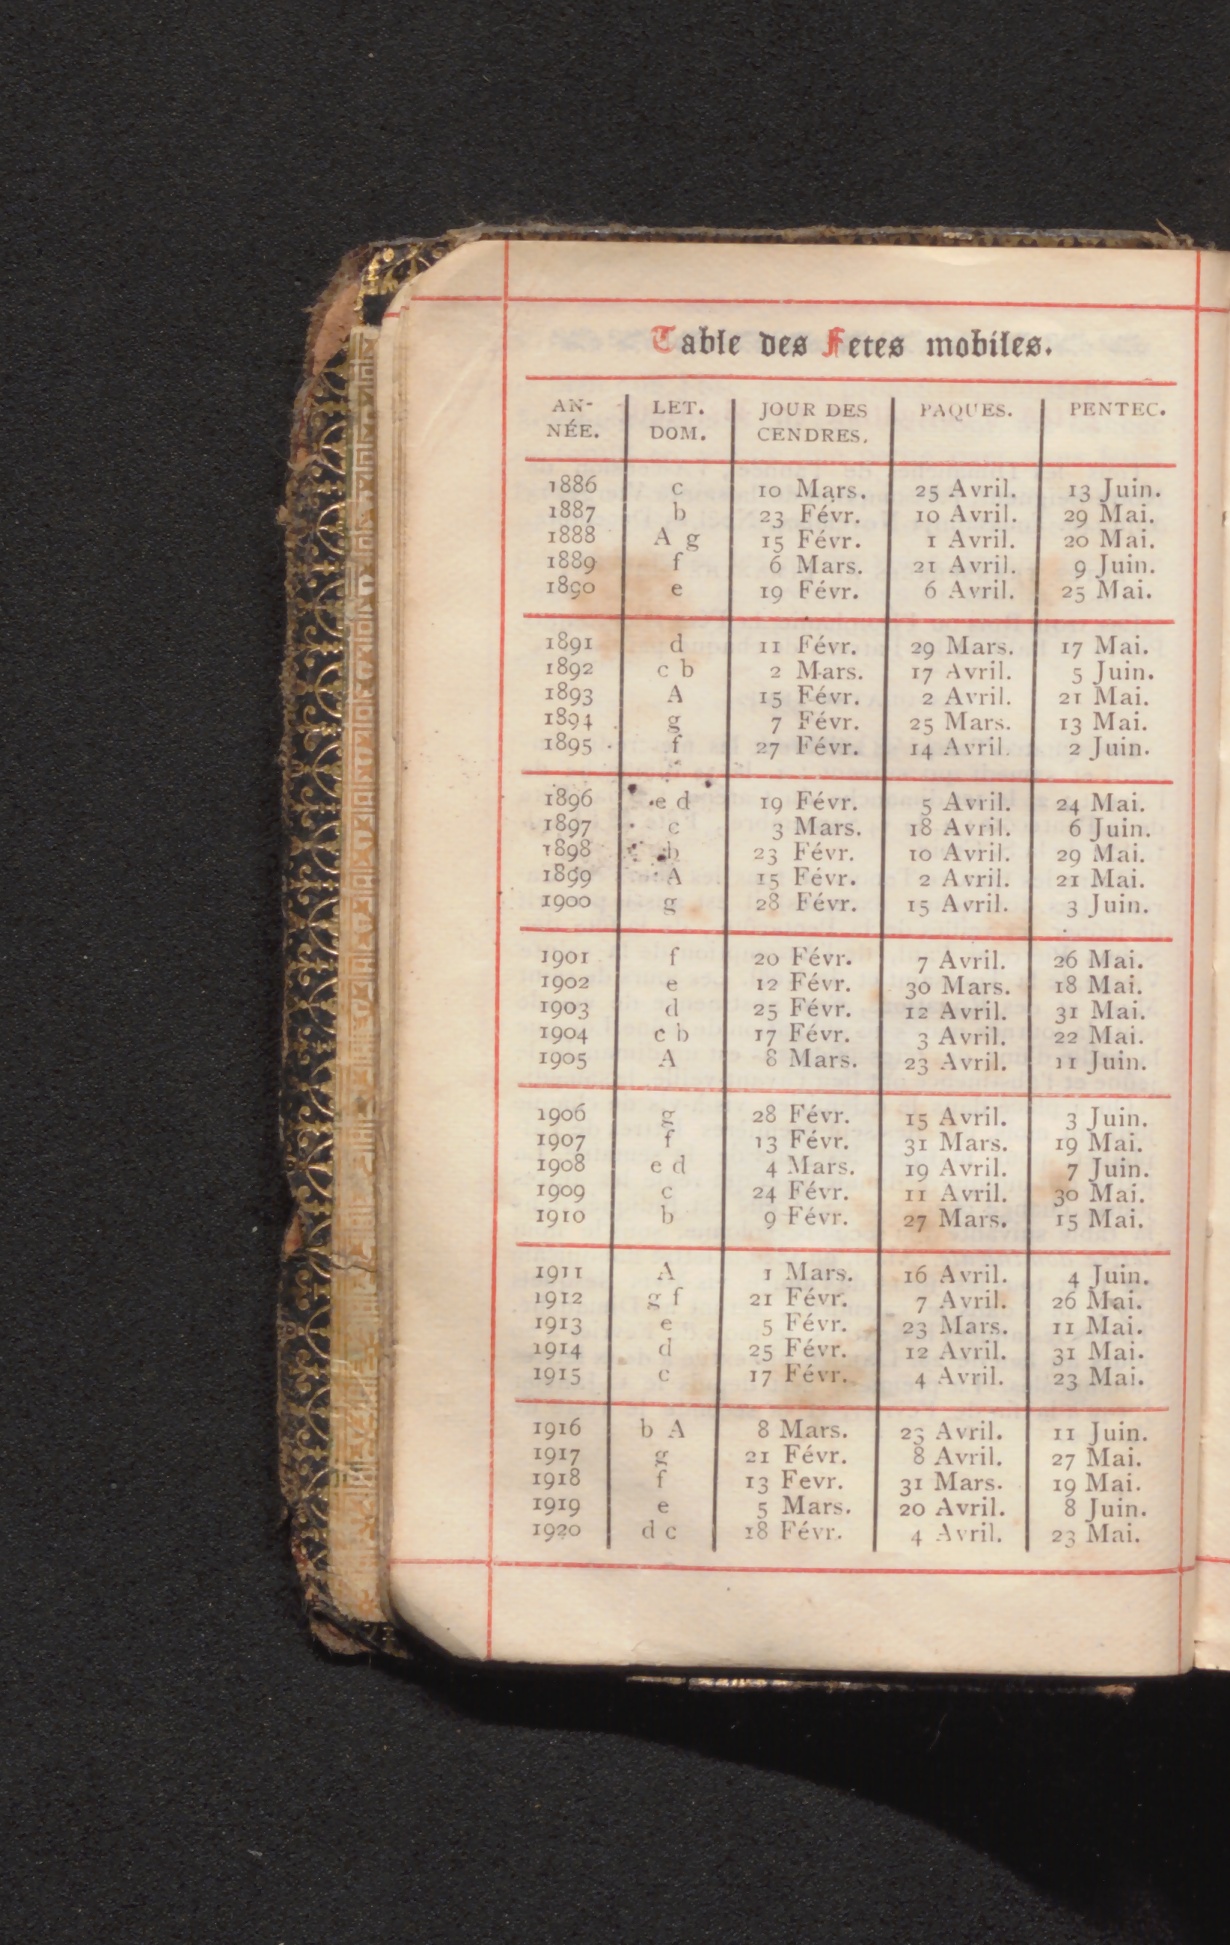 Table des Fetes mobiles.
AN- LET. JOUR DES PAQUES. PENTEC.
NÉE. DOM. CENDRES.
1886 c 10 Mars. 25 Avril. 13 Juin.
1887 b 23 Févr. 10 Avril. 29 Mai.
1888 A g 15 Févr. 1 Avril. 20 Mai.
1889 f 6 Mars. 21 Avril. 9 Juin.
1890 e 19 Févr. 6 Avril. 25 Mai.
1891 d 11 Févr. 29 Mars. 17 Mai.
1892 c b 2 Mars. 17 Avril. 5 Juin.
1893 A 15 Févr. 2 Avril. 21 Mai.
1894 g 7 Févr. 25 Mars. 13 Mai.
1895 f 27 Févr. 14 Avril. 2 Juin.
1896 e d 19 Févr. 5 Avril. 24 Mai.
1897 c 3 Mars. 18 Avril. 6 Juin.
1898 b 23 Févr. 10 Avril. 29 Mai.
1899 A 15 Févr. 2 Avril. 21 Mai.
1900 g 28 Févr. 15 Avril. 3 Juin.
1901 f 20 Févr. 7 Avril. 26 Mai.
1902 e 12 Févr. 30 Mars. 18 Mai.
1903 d 25 Févr. 12 Avril. 31 Mai.
1904 c b 17 Févr. 3 Avril. 22 Mai.
1905 A 8 Mars. 23 Avril. 11 Juin.
1906 g 28 Févr. 15 Avril. 3 Juin.
1907 f 13 Févr. 31 Mars. 19 Mai.
1908 e d 4 Mars. 19 Avril. 7 Juin.
1909 c 24 Févr. 11 Avril. 30 Mai.
1910 b 9 Févr. 27 Mars. 15 Mai.
1911 A 1 Mars. 16 Avril. 4 Juin.
1912 g f 21 Févr. 7 Avril. 26 Mai.
1913 e 5 Févr. 23 Mars. 11 Mai.
1914 d 25 Févr. 12 Avril. 31 Mai.
1915 c 17 Févr. 4 Avril. 23 Mai.
1916 b A 8 Mars. 23 Avril. 11 Juin.
1917 g 21 Févr. 8 Avril. 27 Mai.
1918 f 13 Fevr. 31 Mars. 19 Mai.
1919 e 5 Mars. 20 Avril. 8 Juin.
1920 d c 18 Févr. 4 Avril. 23 Mai.